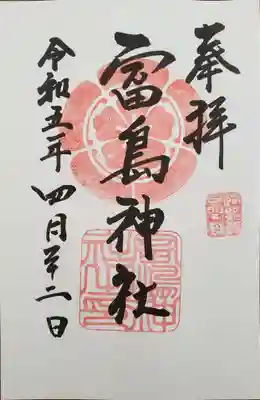 奉拝
富島神社
令和五年四月廿二日